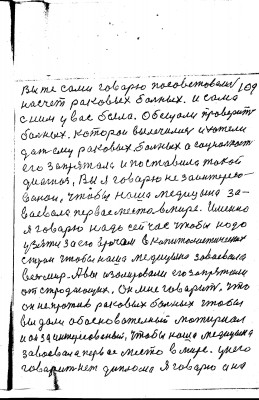 Вы те сами говарю посоветовали 109
насчет раковых больных. и сама
с ним у вас была. Обещали проверить
больных. которои вылечилися и хотели
дат ему раковых больных а
его запрятали и поставили такой
диагноз, Вы я говарю не заинтересо-
ваны, чтобы наша медицына за-
ваевала первае место в мире. Именно
я говарю надо сейчас чтобы надо
узяти за его в капиталистических
стран чтобы наша медицына завоевала
весь мир. А вы изолировали его запрятали
от страдающих. Он мне говарит, что
он не против раковых больных чтобы
вы дали обоснователный матириал
и он заинтересованый, чтобы наша медицына
завоевала первое место в мире. У него
говарит нет диплома я говарю а на